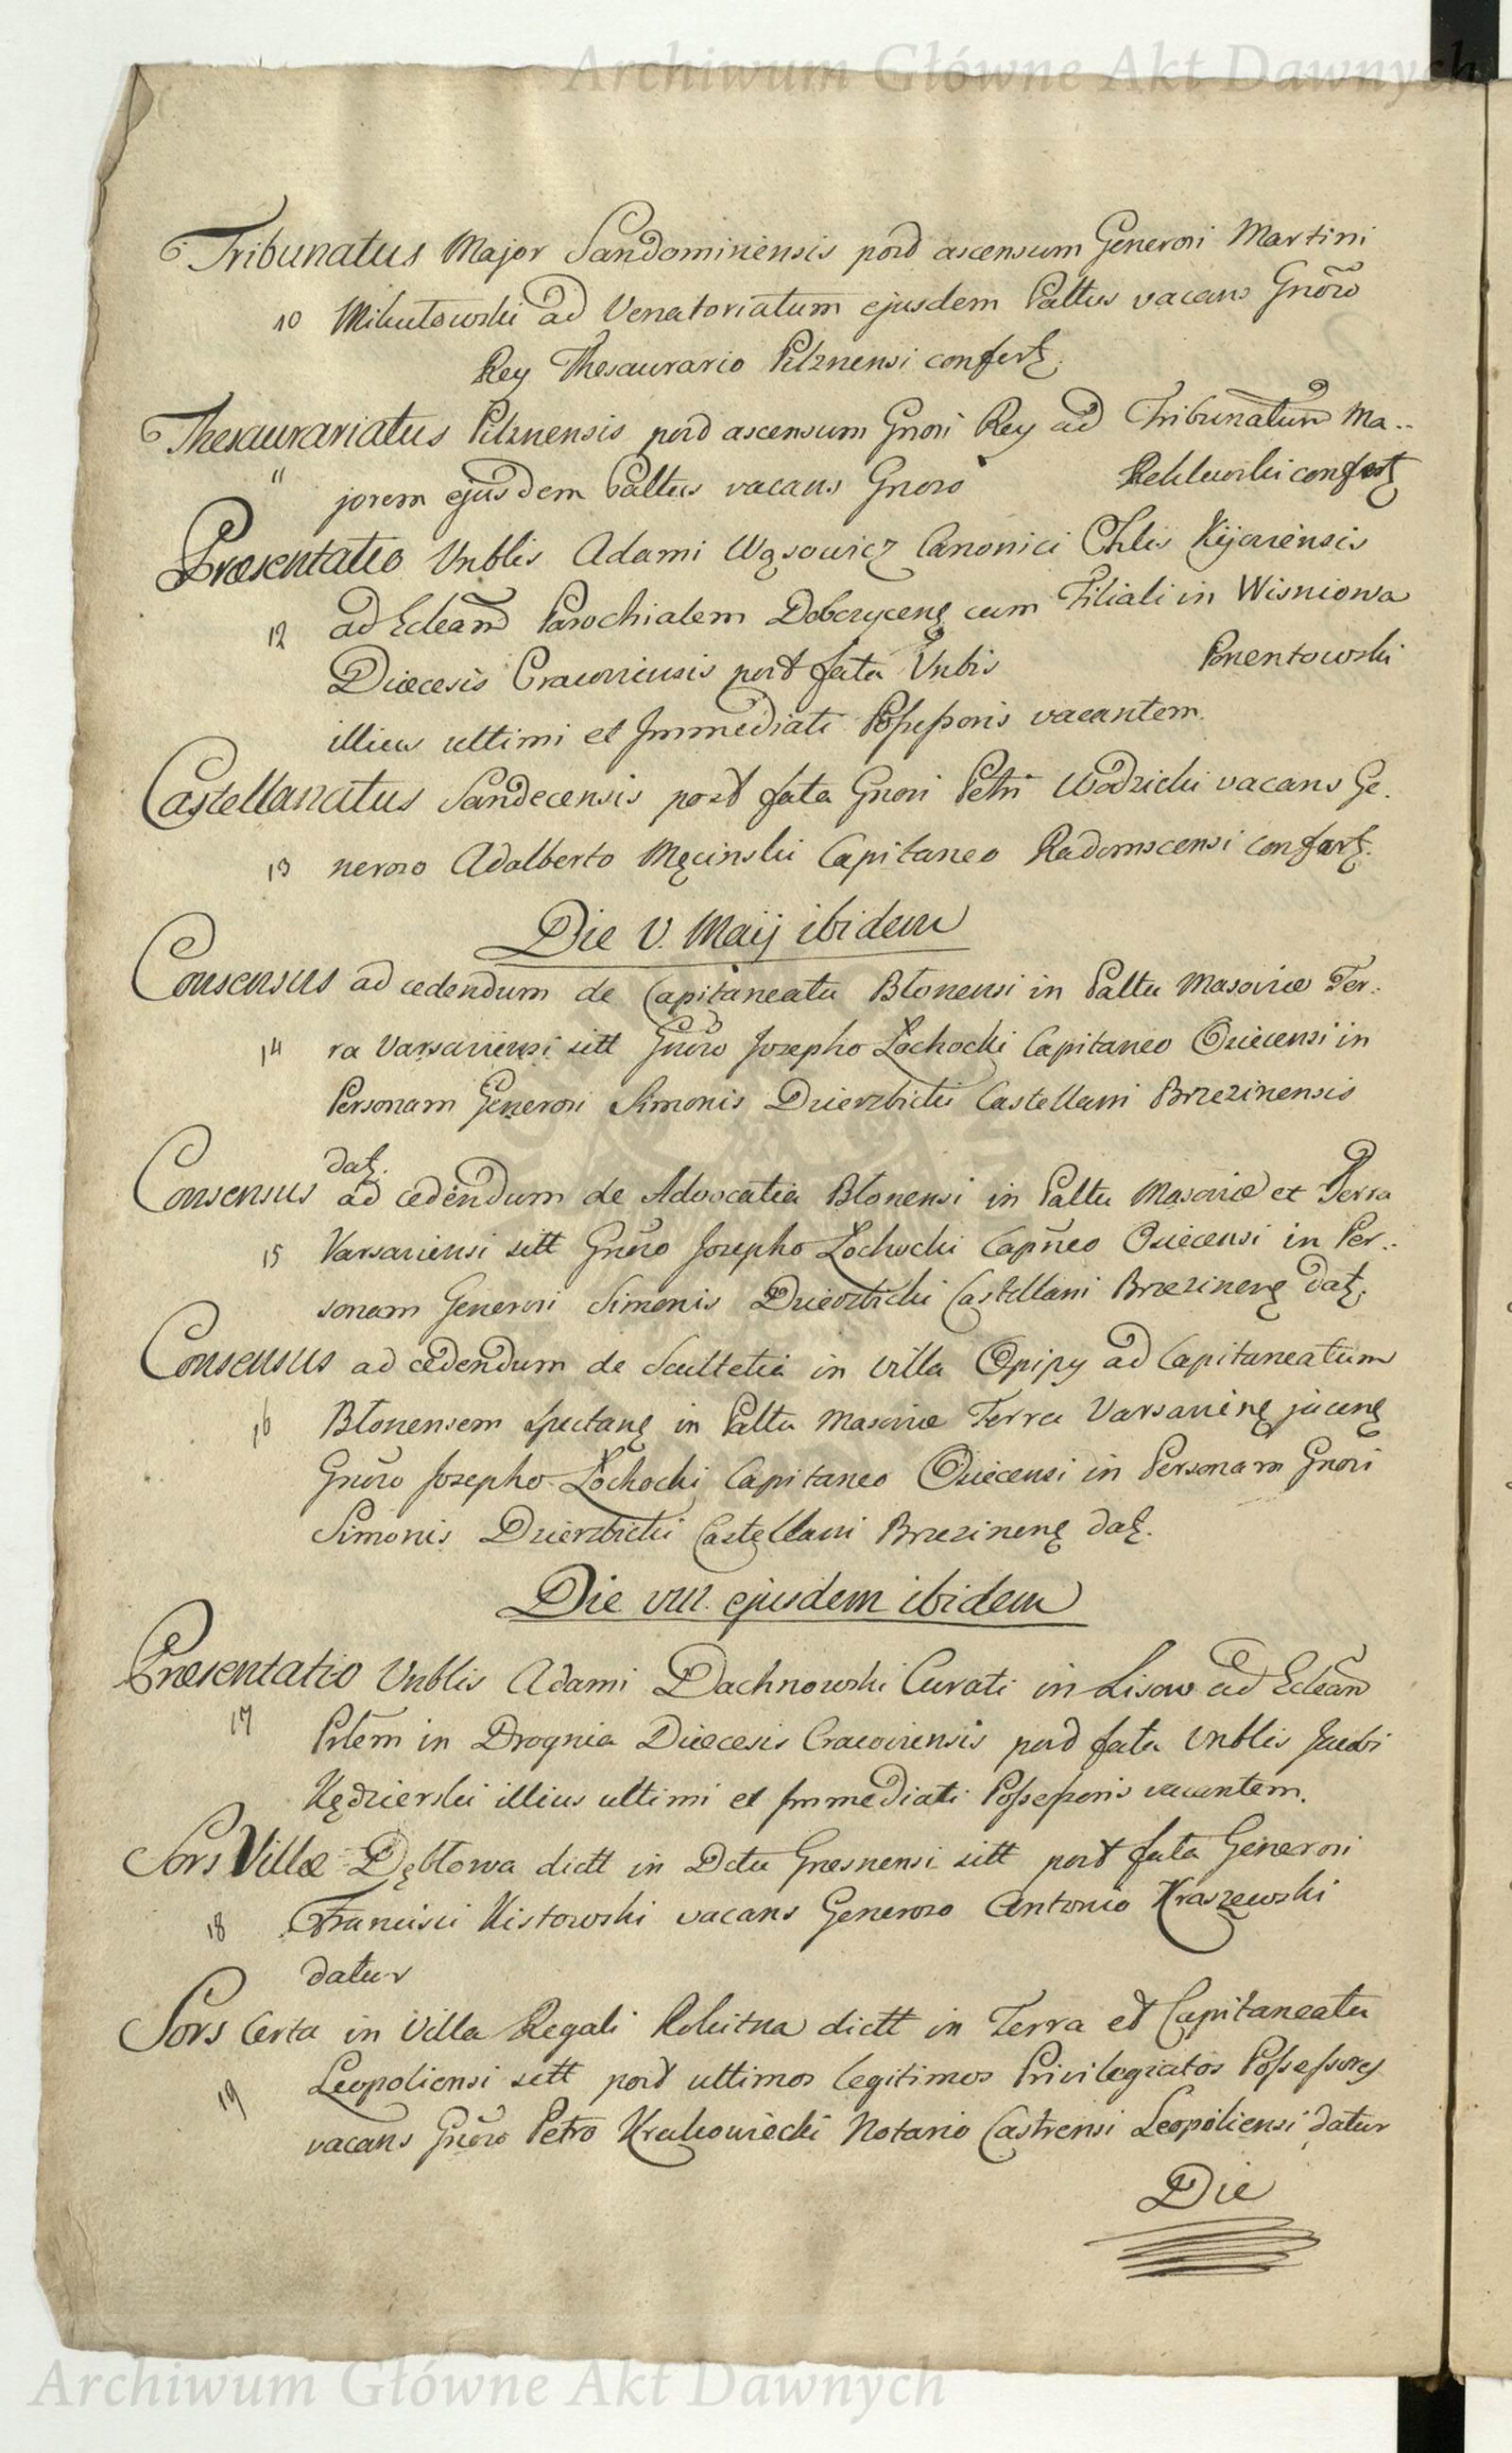 Archiwum Główne Akt Dawnych
Tribunatus Major Sandomiriensis post ascensum Generosi Martini
10 Mikułowski ad Venatoriatum ejusdem Pallus vacans Gnõso
Rey Thesaurario Pilznensi confertʒ.
Thesaurariatus Pilznensis post ascensum Gnosi Rey ad Tribunatum Ma-
11 jorem ejusdem Pallus vacans Gnoso Rehlewski confertʒ
Præsentatio Vnblis Adami Wąsowicz Canonici Chlis Kijoviensis
12 ad Eccleãm Parochialem Dobczycenʒ cum Filiali in Wisniowa
Diæcesis Cracoviensis post fata Vnbis Prentowski
illius ultimi et Immediati Possessoris vacantem.
Castellanatus Sandecensis post fata Gnosi Petri Wodzicki vacans Ge-
13 neroso Adalberto Męcinski Capitaneo Radomscensi confertʒ.
Die V. Maij ibidem
Consensus ad cedendum de Capitaneatu Błonensi in Pallu Masoviæ Ter-
14 ra Varsaviensi sitt Gnõso Josepho Łochocki Capitaneo Osiecensi in
Personam Generosi Simonis Dzierzbicki Castellani Brzezinensis
datʒ.
Consensus ad cedendum de Advocatia Błonensi in Pallu Masoviæ et Terra
15 Varsaviensi sitt Gnõso Josepho Łochocki Capñeo Osiecensi in Per-
sonam Generosi Simonis Dzierzbicki Castellani Brzezinenʒ datʒ.
Consensus ad cedendum de Scultetia in Villa Opipy ad Capitaneatum
16 Błonensem spectanʒ in Pallu Masoviæ Terra Varsavienʒ jacenʒ
Gnõso Josepho Łochocki Capitaneo Osiecensi in Personam Gnosi
Simonis Dzierzbicki Castellani Brzezinenʒ datʒ.
Die VIII. ejusdem ibidem
Præsentatio Vnblis Adami Dachnowski Curati in Lisow ad Eccleãm
17 Přlem in Drognia Diæcesis Cracoviensis post fata Vnblis Jacobi
Kędzierski illius ultimi et Immediati Possessoris vacantem.
Sors Villæ Dębłowa dictt in Dctu Gnesnensi sitt post fata Generosi
18 Francisci Kistowski vacans Generoso Antonio Kraszewski
datur
Sors Certa in Villa Regali Rokitna dictt in Terra et Capitaneatu
19 Leopoliensi sitt post ultimos legitimos Privilegiatos Possessores
vacans Gnõso Petro Krakowiecki Notario Castrensi Leopoliensi datur
Die
Archiwum Główne Akt Dawnych